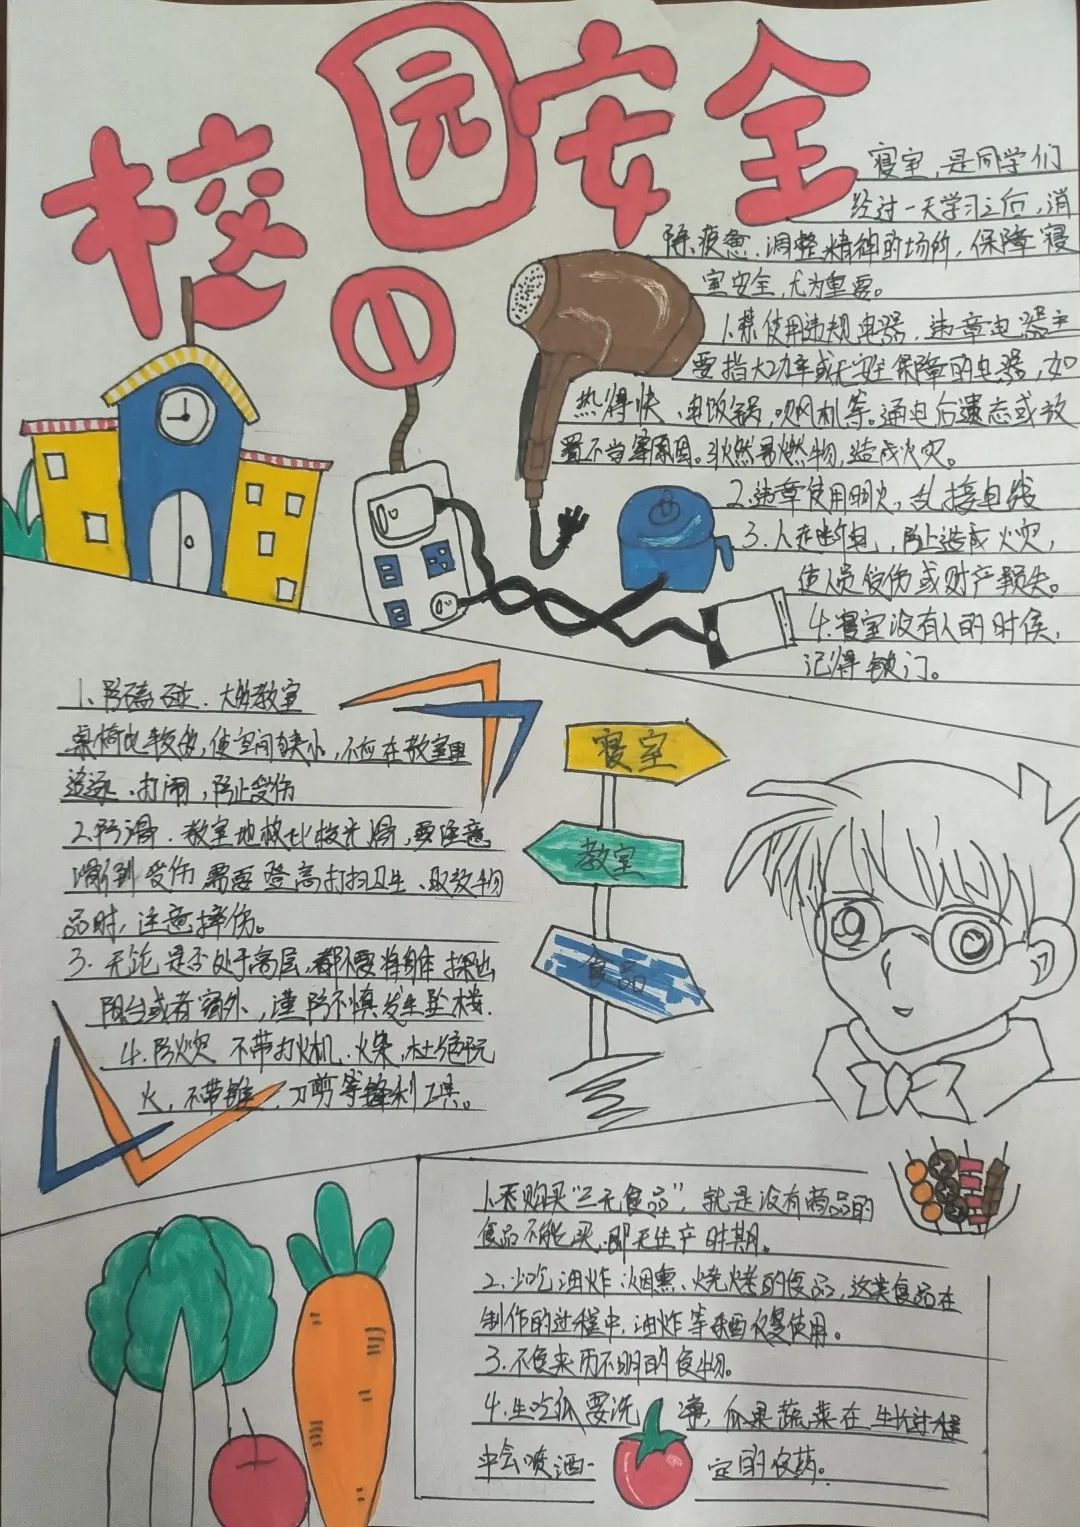 校园安全
寝室,是同学们
经过一天学习之后,消
除疲惫、调整精神的场所,保障寝
室安全,尤为重要。
1.禁使用违规电器,违章电器主
要指大功率或无安全保障的电器,如
热得快、电饭锅,吹风机等。通电后遗忘或放
置不当等原因。引燃易燃物,造成火灾。
2.违章使用明火,乱接电线
3.人走断电,防止造成火灾,
使人员伤或财产损失。
4.寝室没有人的时候,
记得锁门。
1、防磕碰.大教室
桌椅比较多,使空间狭小,不应在教室里
追逐、打闹,防止受伤
2.防滑.教室地板比较光滑,要注意
滑倒受伤需要登高打扫卫生、取放物
品时,注意摔伤。
3.无论是否处于高层,都不要将身体探出
阳台或者窗外,谨防不慎发生坠楼.
4.防火灾 不带打火机、火柴,杜绝玩
火,不带锥、刀剪等锋利工具。
寝室
教室
食品
1.不购买“三无食品”,就是没有商品的
食品不能买,即无生产时期。
2.少吃油炸、烟熏、烧烤的食品,这类食品在
制作的过程中,油炸等东西反复使用。
3.不食来历不明的食物。
4.生吃瓜要洗净,瓜果蔬菜在生长过程
中会喷洒一定的农药。